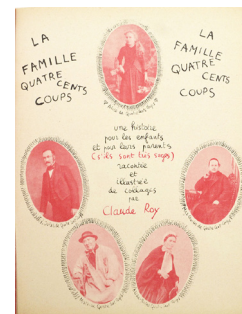 LA
FAMILLE
QUATRE
CENTS
COUPS
LA
FAMILLE
QUATRE
CENTS
COUPS
une histoire
pour les enfants
et pour leurs parents
(s'ils sont très sages)
racontée
et
illustrée
de collages
par
Claude Roy